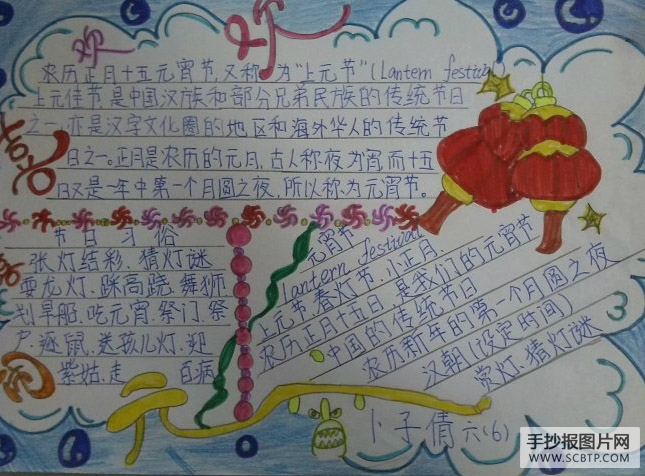 欢
农历正月十五元宵节,又称为"上元节"(Lantern festival
上元佳节,是中国汉族和部分兄弟民族的传统节日
之一,亦是汉字文化圈的地区和海外华人的传统节
日之一。正月是农历的元月,古人称夜为宵,而十五
日又是一年中第一个月圆之夜,所以称为元宵节。
喜
节日习俗
张灯结彩、猜灯谜
耍龙灯、踩高跷、舞狮
划旱船、吃元宵、祭门、祭
户、逐鼠、送孩儿灯、迎
紫姑、走 百病
元宵节
Lantern festival
上元节、春灯节、小正月、
农历正月十五日 是我们的元宵节
中国的传统节日
农历新年的第一个月圆之夜
汉朝(设定时间)
赏灯、猜灯谜
卜子倩 六(6)
手抄报图片网
WWW.SCBTP.COM